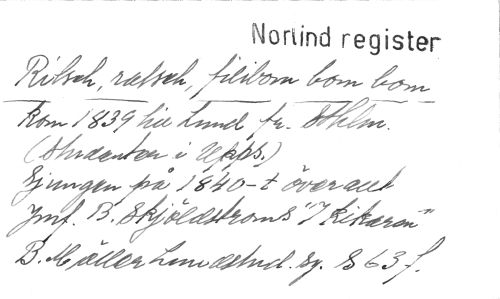 Norlind register
Ritsch, ratsch, filibom bom bom
kom 1839 till Lund fr. Sthlm.
(Studenter i Upps.)
Sjungen på 1840-t överallt
Jmf. B. Skjöldströms "I kikaren"
B. Möller Lundastud. sg. S 63 f.